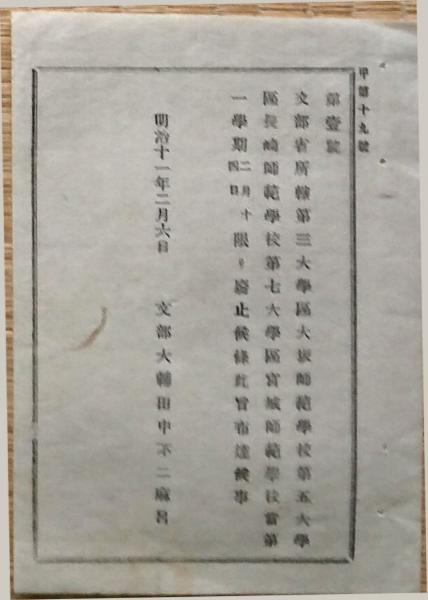 甲第十九號
第壹號
文部省所轄第三大學區大坂師範學校第五大學
區長崎師範學校第七大學區宮城師範學校當第
一學期二月十四日限リ廢止候條此旨布達候事
明治十一年二月六日
文部大輔田中不二麻呂